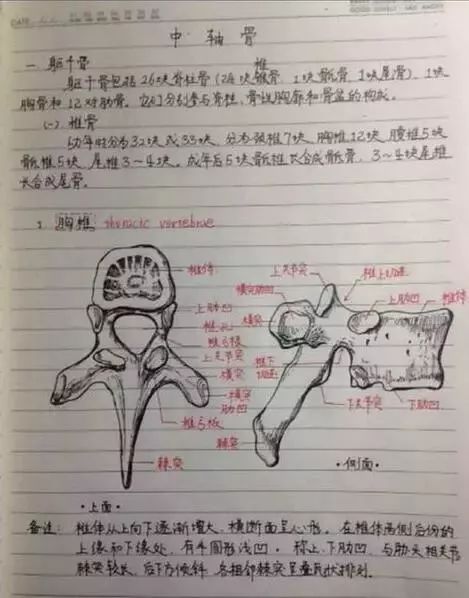 DATE
中轴骨
一、躯干骨
躯干骨包括26块脊柱骨(24块椎骨、1块骶骨、1块尾骨)、1块
胸骨和12对肋骨。它们分别参与脊柱、骨性胸廓和骨盆的构成。
(一)椎骨
幼年时分为32块或33块,分为颈椎7块,胸椎12块,腰椎5块
骶椎5块,尾椎3～4块。成年后5块骶椎长合成骶骨,3～4块尾椎
长合成尾骨。
胸椎 thoracic vertebrae
椎体
上肋凹
椎孔
椎弓根
上关节突
横突
横突
肋凹
椎弓板
棘突
·上面·
上关节突
椎上切迹
横突肋凹
上肋凹
椎体
横突
椎下
切迹
下关节突
下肋凹
棘突
·侧面·
备注:椎体从上向下逐渐增大,横断面呈心形。在椎体两侧后份的
上缘和下缘处,有半圆形浅凹,称上、下肋凹,与肋头相关节
棘突较长,后下方倾斜,各相邻棘突呈叠瓦状排列。